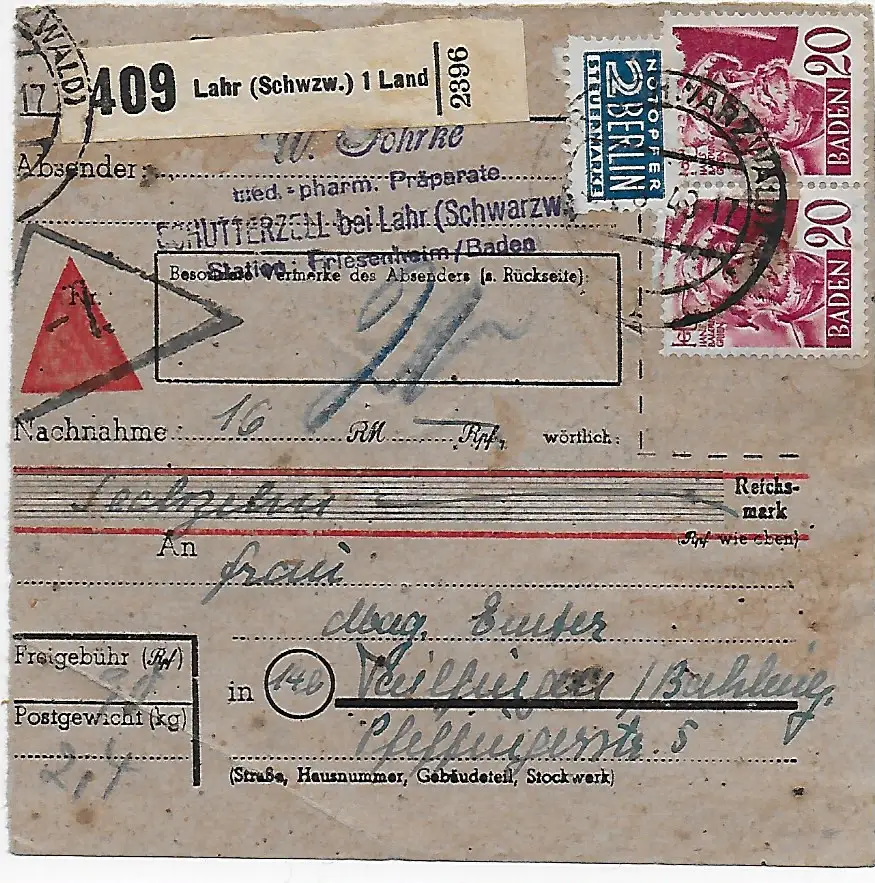 409 Lahr (Schwzw.) 1 Land 2396
NOTOPFER
2 BERLIN
STEUERMARKE
BADEN 20
BADEN 20
17
Absender:
med.-pharm. Präparate
SCHUTTERZELL bei Lahr (Schwarzw.)
Station: Friesenheim/Baden
Besondere Vermerke des Absenders (s. Rückseite):
Nr.
Nachnahme: 16 RM — Rpf, wörtlich:
Sechzehn
Reichs-
mark
(Rpf wie oben)
An
Frau
Mag.
Freigebühr (Rpf)
in 14b
Postgewicht (kg)
2,4
Pfeffingerstr. 5
(Straße, Hausnummer, Gebäudeteil, Stockwerk)